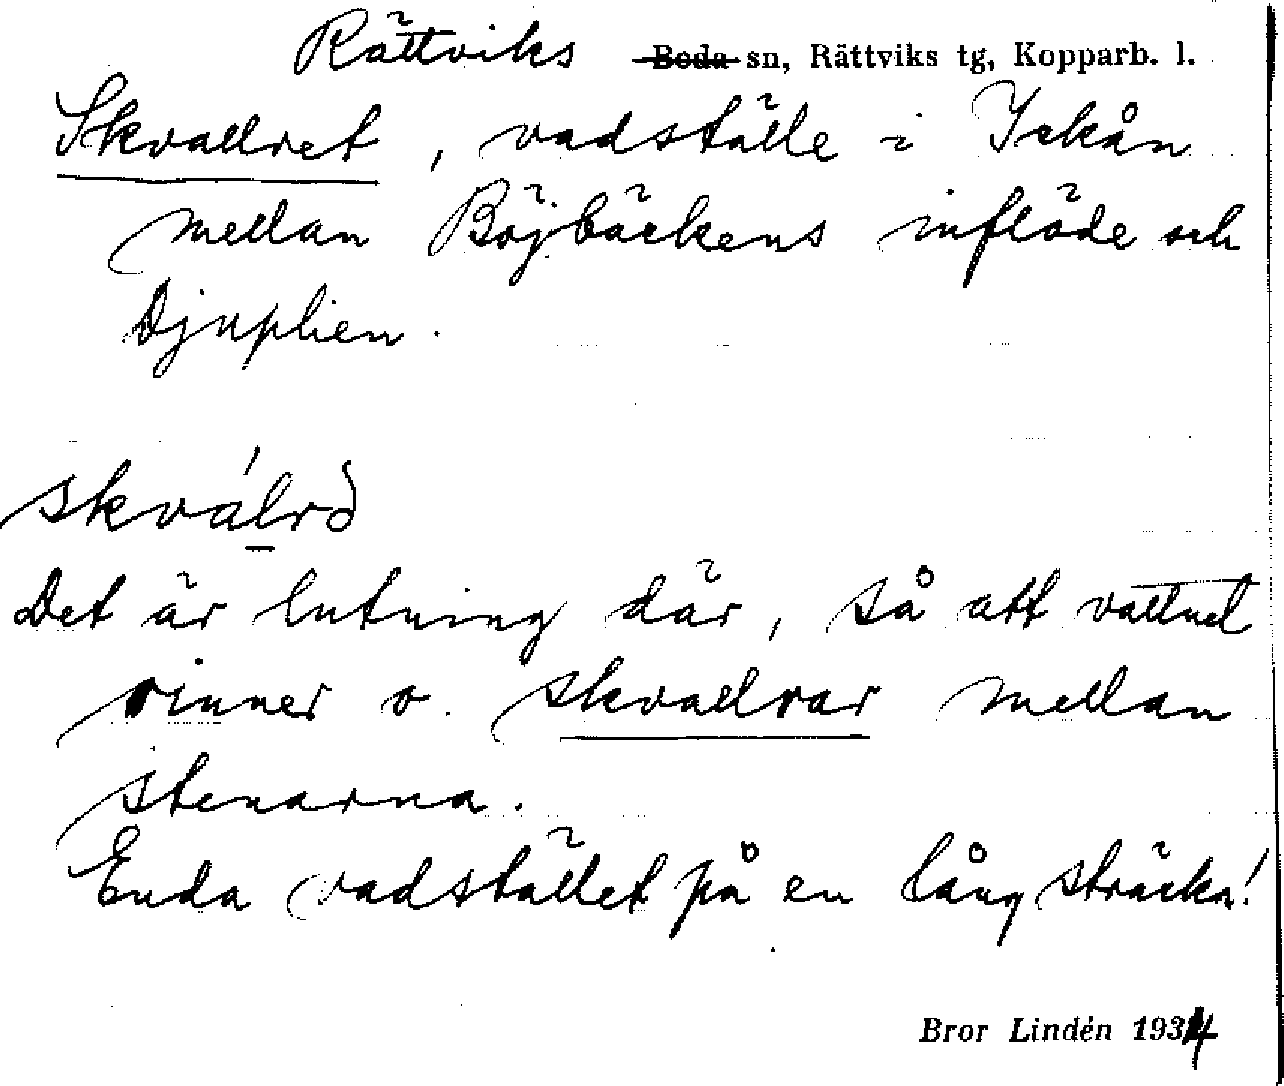 Rättviks ~~Boda~~ sn, Rättviks tg, Kopparb. l.
Skvallret, vadställe i Ickån
mellan Böjbäckens inflöde och
Djuplien.
skválrə̀
Det är lutning där, så att vattnet
rinner o. skvallrar mellan
stenarna.
Enda vadstället på en lång sträcka!
Bror Lindén 1934